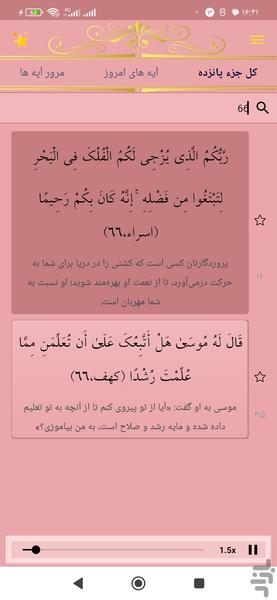 ۱۶:۳۱
63
کل جزء پانزده
آیه های امروز
مرور آیه ها
66
رَبُّكُمُ الَّذِی یُزْجِی لَكُمُ الْفُلْكَ فِی الْبَحْرِ
لِتَبْتَغُوا مِن فَضْلِهِ ۚ إِنَّهُ كَانَ بِكُمْ رَحِیمًا
(اسراء،۶۶)
پروردگارتان کسی است که کشتی را در دریا برای شما به
حرکت درمی‌آورد، تا از نعمت او بهره‌مند شوید؛ او نسبت به
شما مهربان است.
۱۶
قَالَ لَهُ مُوسَىٰ هَلْ أَتَّبِعُكَ عَلَىٰ أَن تُعَلِّمَنِ مِمَّا
عُلِّمْتَ رُشْدًا (کهف،۶۶)
موسی به او گفت: «آیا از تو پیروی کنم تا از آنچه به تو تعلیم
داده شده و مایه رشد و صلاح است، به من بیاموزی؟»
۴۵
1.5x
بازار